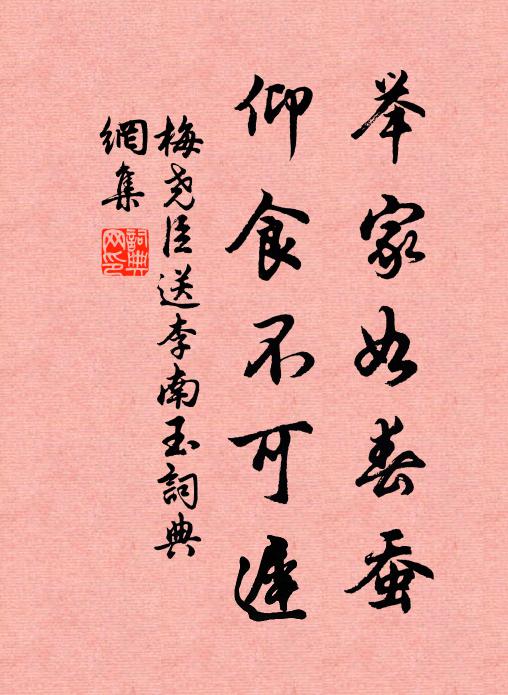 举家如春蚕
仰食不可遲
梅尧臣送李南玉詞典
網集
詞典
网印